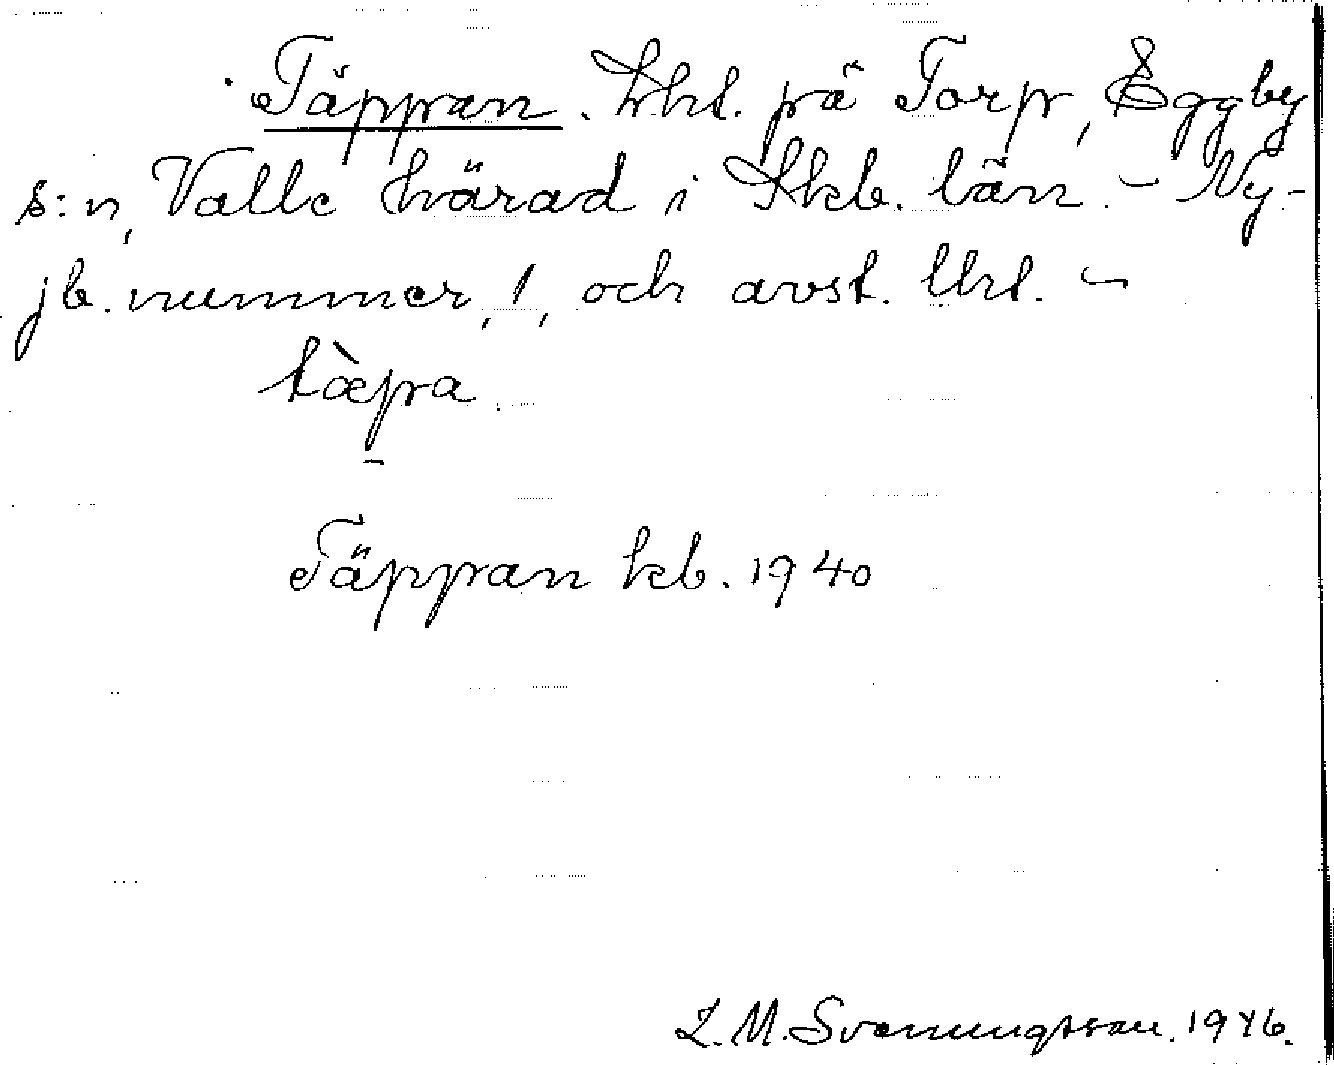 Täppan. Lht. på Torp, Eggby
s:n, Valle härad i Skb. län. - Ny-
jb. nummer, 1, och avst. Uht. -
tæ̀pa.
Täppan kb. 1940
L. M. Svenungsson. 1946.